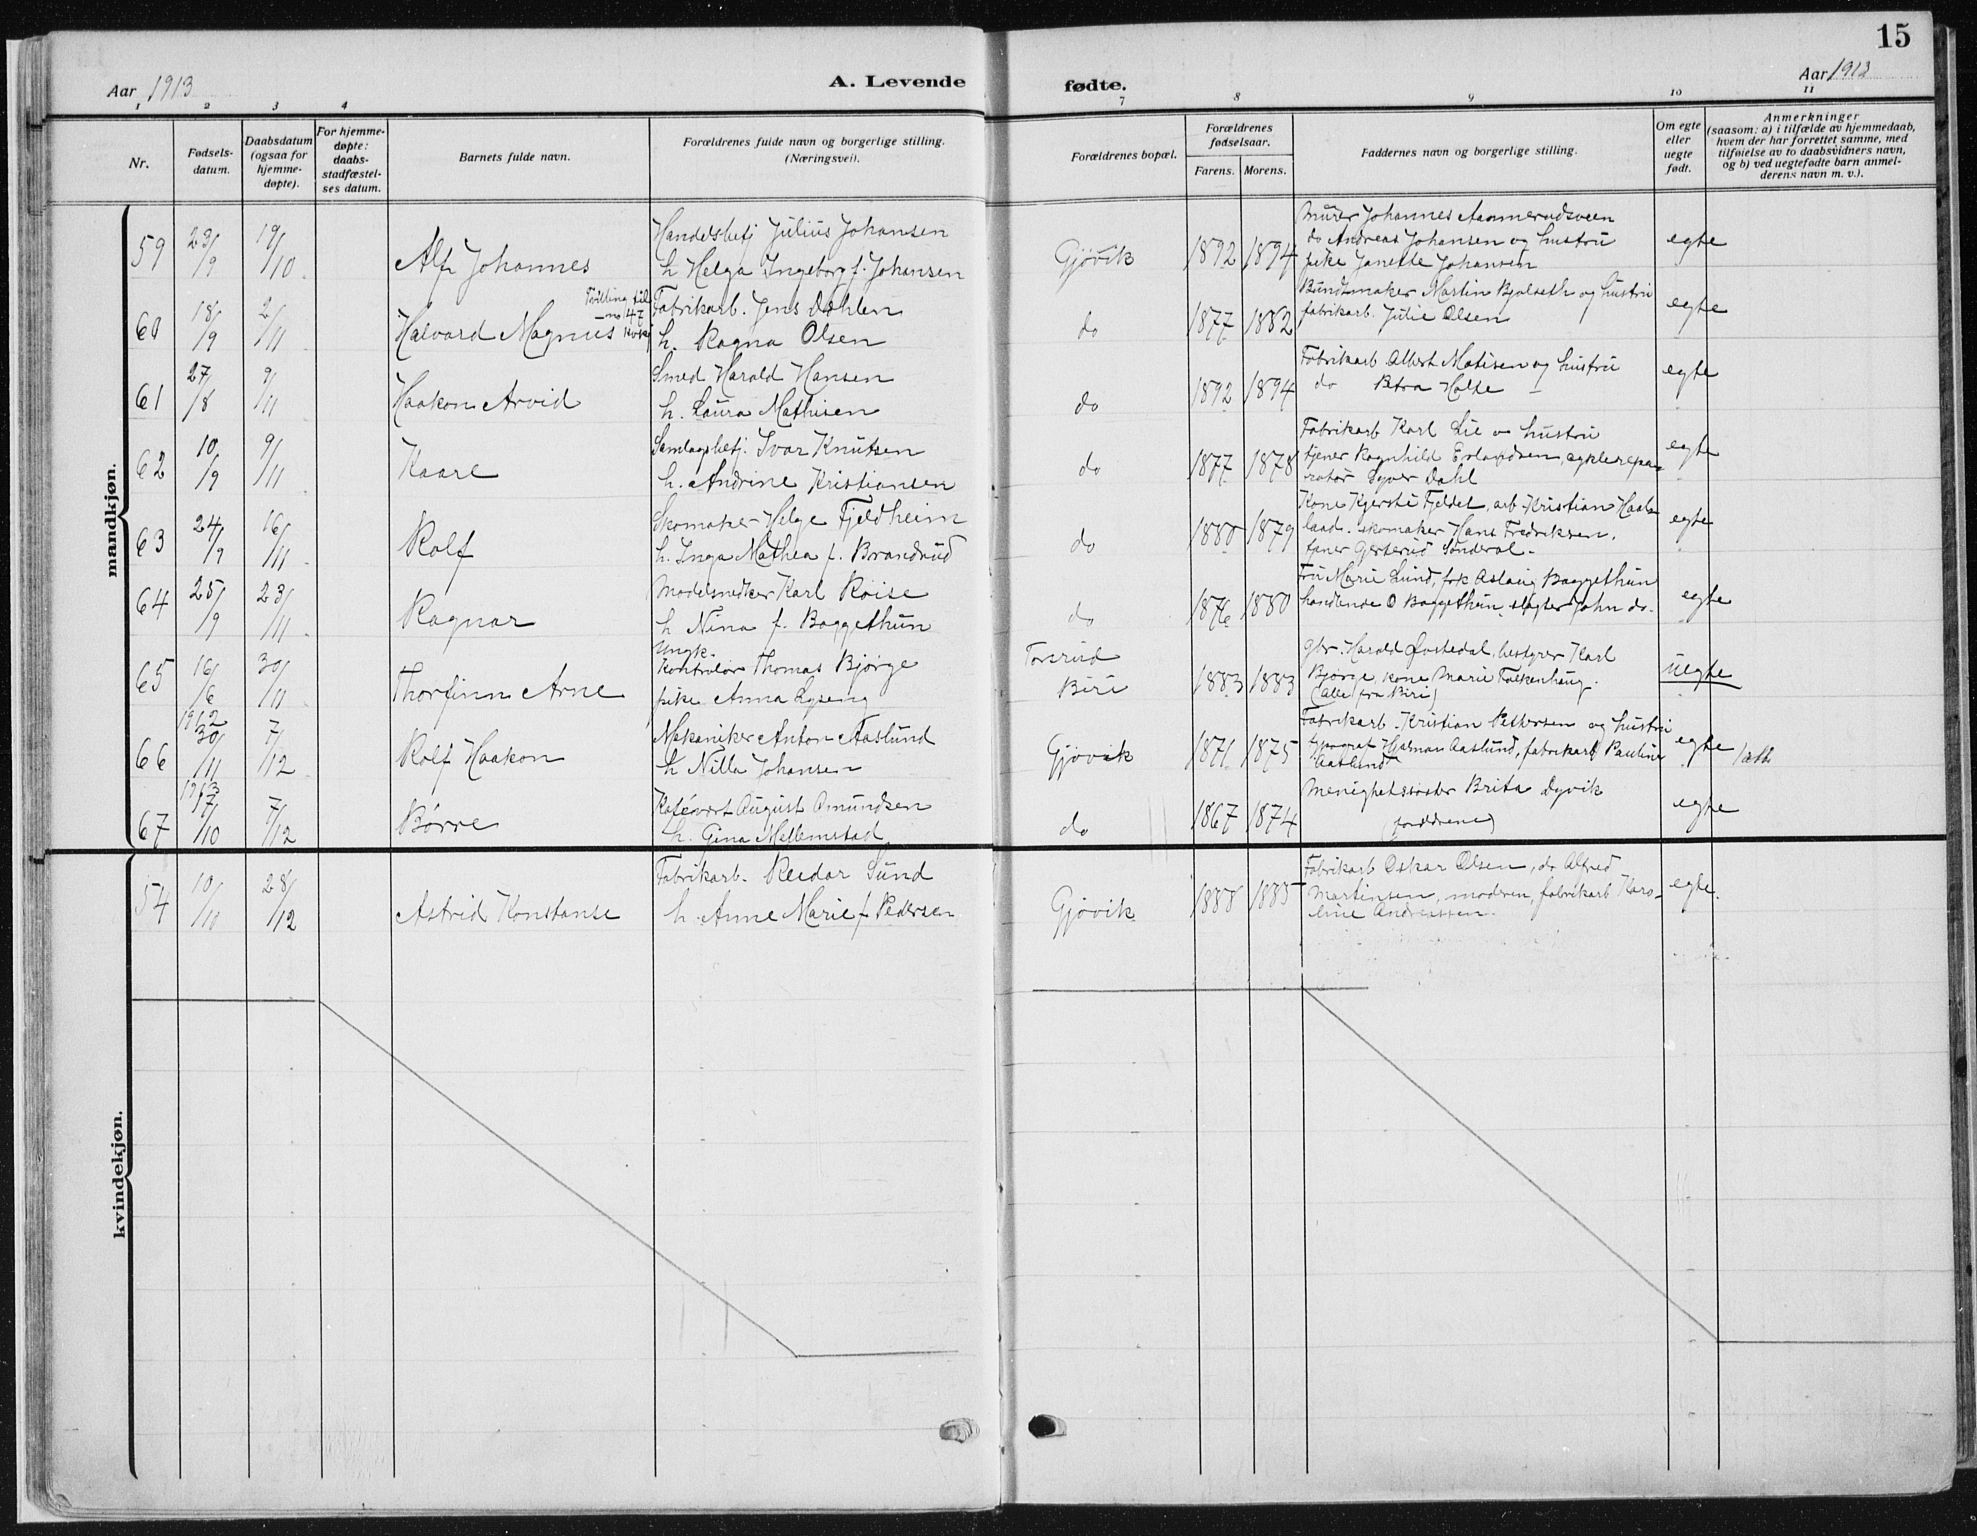 15
Aar 1913
A. Levende
fødte.
Aar 1913
1 2 3 4 7 8 9 10 11
Nr.
Fødsels-
datum.
Daabsdatum
(ogsaa for
hjemme-
døpte).
For hjemme-
døpte:
daabs-
stadfæstel-
ses datum.
Barnets fulde navn.
Forældrenes fulde navn og borgerlige stilling.
(Næringsvei).
Forældrenes bopæl.
Forældrenes
fødselsaar.
Farens. Morens.
Faddernes navn og borgerlige stilling.
Om egte
eller
uegte
født.
Anmerkninger
(saasom: a) i tilfælde av hjemmedaab,
hvem der har forrettet samme, med
tilføielse av to daabsvidners navn,
og b) ved uegtefødte barn anmel-
derens navn m. v.).
mandkjøn.
59 23/9 19/10 Alf Johannes
Handelsbetj Julius Johansen
h Helga Ingeborg f. Johansen
Gjøvik 1892 1894
Murer Johannes
do Andreas Johansen og hustru
pike Janette Johansen
egte
60 18/9 2/11 Halvard Magnus
Tvilling til
no 47
Fabrikarb. Jens Dahlen
h. Ragna Olsen
do 1877 1882
Bundtmaker Martin Bjølseth og hustru
fabrikarb. Julie Olsen
egte
61 27/8 9/11 Haakon Arvid
Smed Harald Hansen
h. Laura Mathisen
do 1892 1894
Fabrikarb Albert Matisen og hustru
do Petra Holte
egte
62 10/9 9/11 Kaare
Samlagsbetj. Ivar Knutsen
h. Andrine Kristiansen
do 1877 1878
Fabrikarb Karl Lie o hustru
tjener Ragnhild Erlandsen, cyklerepa-
ratør Syver Dahl
egte
63 24/9 16/11 Rolf
Skomaker Helge Fjeldheim
h. Inga Mathea f. Brandrud
do 1880 1879
Kone Kjersti Fjeldet, arb Kristian Haake-
stad. skomaker Hans Fredriksen,
egte
64 25/9 23/11 Ragnar
Modelsnedker Karl Røise
h Nina f. Baggethun
do 1876 1880
Fru Marie Lund, frk Aslaug Baggethun
handlende O Baggethun, slagter John do.
egte
65 16/6 30/11 Thorfinn Arne
Ungk.
Kontrolør Thomas Bjørge
pike Anna Lyseng
Biri 1883 1883
gbr. Harald Øvstedal, bestyrer Karl
Bjørge, kone Marie Falkenhaug.
(Alle fra Biri)
uegte
66 1912 30/11 7/12 Rolf Haakon
Mekaniker Anton Aaslund
h Nilla Johansen
Gjøvik 1871 1875
Fabrikarb. Kristian Pettersen og hustru
typograf Hjalmar Aaslund, fabrikarb Pauline
Aaslund
egte
67 1913 7/10 7/12 Børre
Kafévert August Amundsen
h. Gina Mellemstad
do 1867 1874
Menighetssøster Brita Dyvik
(forældrene)
egte
kvindekjøn.
54 10/10 28/12 Astrid Konstanse
Fabrikarb. Reidar Sund
h. Anne Marie f Pedersen
Gjøvik 1888 1885
Fabrikarb Oskar Olsen, do Alfred
Martinsen, modren, fabrikarb Karo-
line Andreassen.
egte.